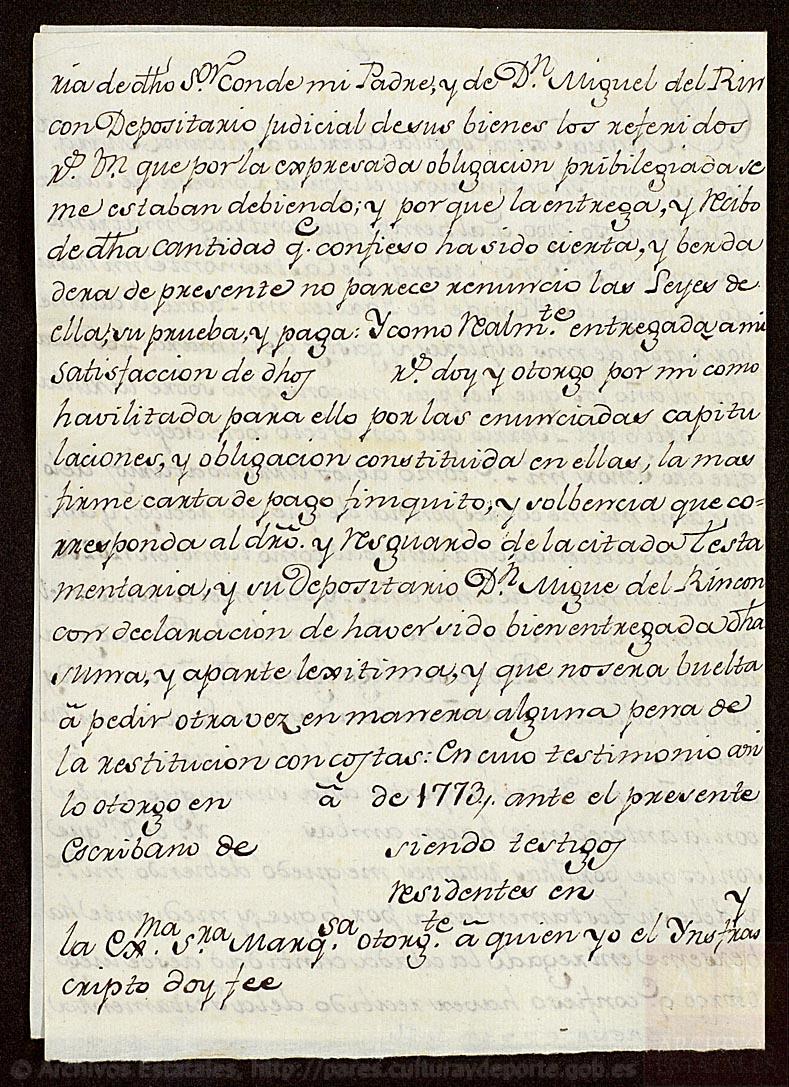 ria de dho S.or Conde mi Padre, y de D.n Miguel del Rin
con Depositario judicial de sus bienes los referidos
r.s Vn que por la expresada obligacion pribilegiada se
me estaban debiendo; y por que la entrega, y recibo
de dha cantidad q.e confieso ha sido cierta, y berda
dera de presente no parece renuncio las Leyes de
ella, su prueba, y paga: Y como realm.te entregada a mi
satisfaccion de dhos r.s doy y otorgo por mi como
havilitada para ello por las enunciadas capitu
laciones, y obligacion constituida en ellas, la mas
firme carta de pago finiquito, y solbencia que co-
rresponda al dro. y resguardo de la citada Testa
mentaria, y su Depositario D.n Migue del Rincon
con declaracion de haver sido bien entregada dha
suma, y aparte lexitima, y que no sera buelta
â pedir otra vez en manera alguna pena de
la restitucion con costas: En cuio testimonio asi
lo otorgo en â de 1773,, ante el presente
Escribano de siendo testigos
residentes en y
la Ex.ma S.ra Marq.sa otorg.te â quien yo el Ynfras
cripto doy fee
© Archivos Estatales, http://pares.culturaydeporte.gob.es